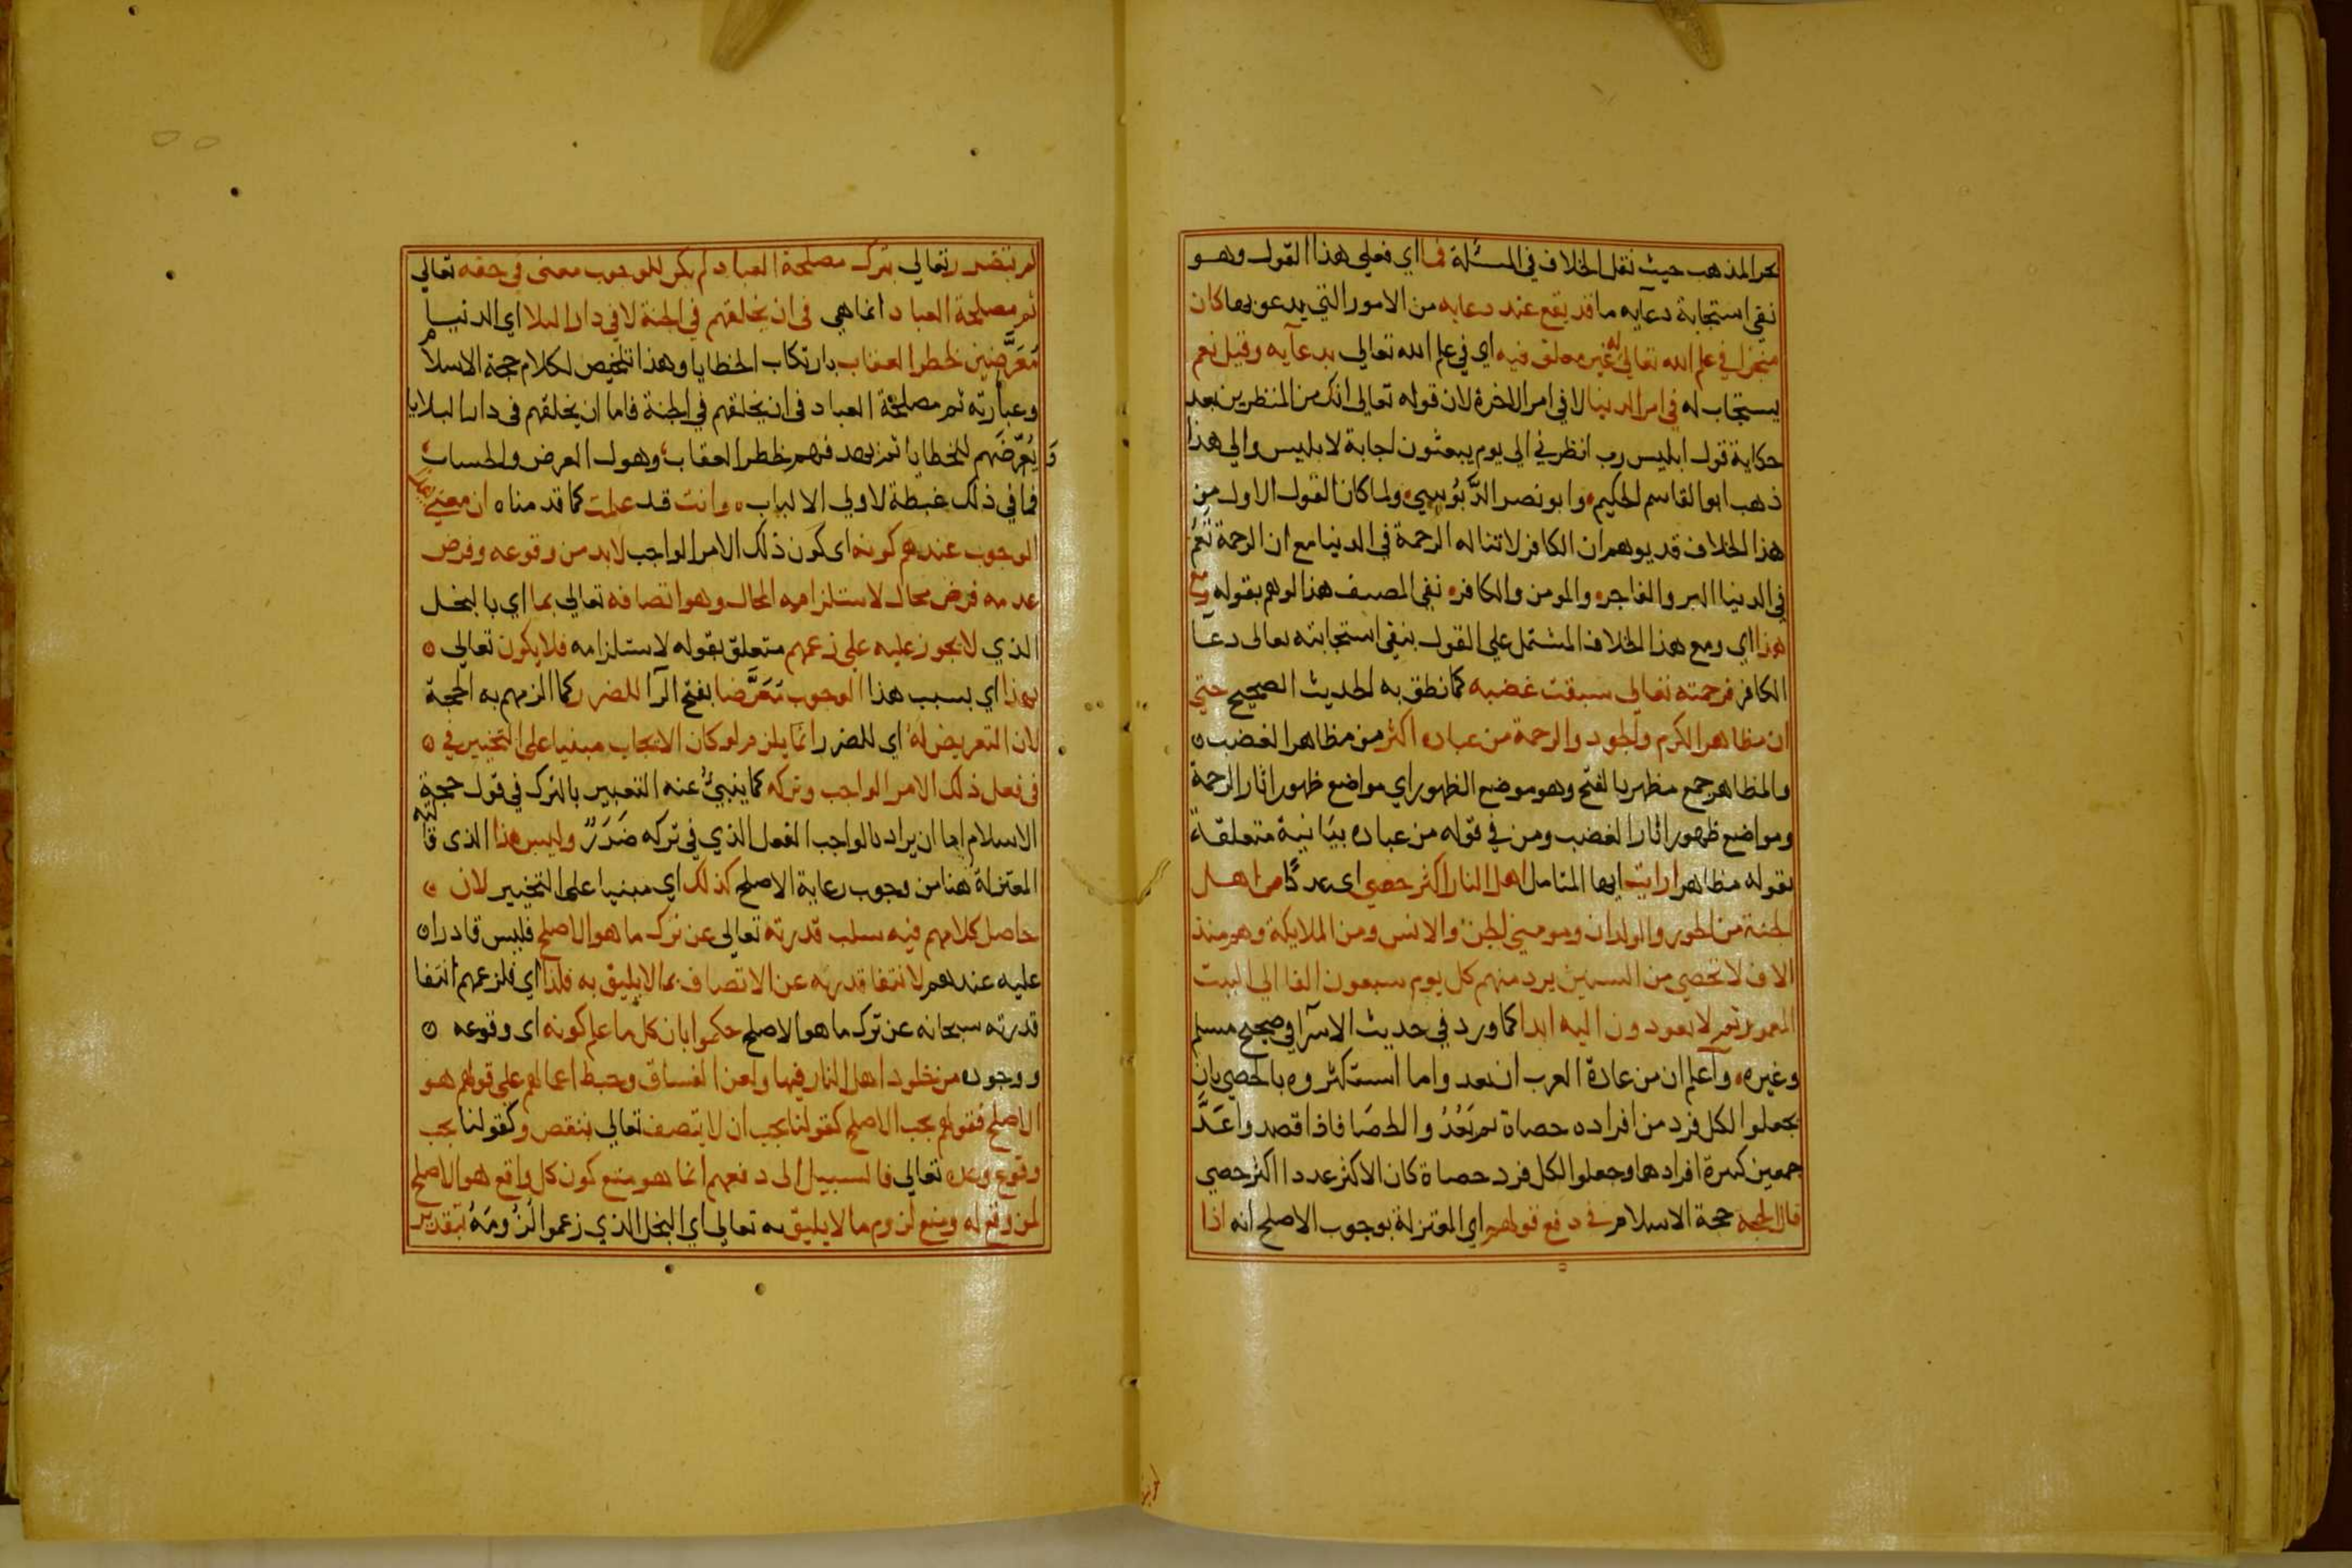 بحر المذهب حيث نقل الخلاف في المسئلة فما اي فعلي هذا القول وهو
نفي استجابة دعآيه ما قد يقع عند دعايه من الامور التي يدعو بها كان
منجزا في علم الله تعالي له غير معلق فيه اي في علم الله تعالي بدعآيه وقيل نعم
يستجاب له في امر الدنيا لا في امر الاخرة لان قوله تعالي انك من المنظرين بعد
حكاية قول ابليس رب انظرني الي يوم يبعثون اجابة لابليس والي هذا
ذهب ابو القاسم الحكيم وابو نصر الدَّبُوسي ولما كان القول الاول من
هذا الخلاف قد يوهم ان الكافر لا تناله الرحمة في الدنيا مع ان الرحمة تَعُمُ
في الدنيا البر والفاجر والمومن والكافر نفي المصنف هذا الوهم بقوله ومع
هذا اي ومع هذا الخلاف المشتمل علي القول بنفي استجابته تعالى دعا
الكافر فرحمته تعالي سبقت غضبه كما نطق به الحديث الصحيح حتي
ان مظاهر الكرم والجود والرحمة من عباده اكثر من مظاهر الغضب
والمظاهر جمع مظهر بالفتح وهو موضع الظهور اي مواضع ظهور اثار الرحمة
ومواضع ظهور اثار الغضب ومن في قوله من عباده بيَانية متعلقة
بقوله مظاهر ارايت ايها المتامل اهل النار اكثر حصي اي عددًا من اهل
الجنة من الحور والولدان ومومني الجن والانس ومن الملايكة وهم منذ
الاف لا تحصي من السنين يرد منهم كل يوم سبعون الفا الي البيت
المعمور ثم لا يعودون اليه ابدا كما ورد في حديث الاسرآ في صحيح مسلم
وغيره وآعلم ان من عادة العرب ان تعد واما استكثروه بالحصي بان
يجعلوا لكل فرد من افراده حصاة ثم يَعُدُّ والحصَا فاذا قصدوا عَدَّ
جمعين كسرة افرادها وجعلوا لكل فرد حصاة كان الاكثر عددا اكثر حصي
قال الحجة حجة الاسلام في دفع قولهم اي المعتزلة بوجوب الاصلح انه اذا
لم يتضرر تعالي بترك مصلحة العباد لم يكن للوجوب معنى في حقه تعالي
ثم مصلحة العباد انما هي في ان يخلقهم في الجنة لا في دار البلا اي الدنيا
مُعَرَّضين لخطر العقاب بارتكاب الخطايا وهذا تلخيص لكلام حجة الاسلام
وعبارته ثم مصلحة العباد في ان يخلقهم في الجنة فاما ان يخلقهم في دار البلايا
وَيُعَرِّضَهم للخطايا ثم يهدفهم لخطر العقاب وهول العرض والحساب
فما في ذلك غبطة لاولي الالباب وانت قد علمت كما قدمناه ان معني
الوجوب عندهم كونه اي كون ذلك الامر الواجب لابد من وقوعه وفرض
عدمه فرض محال لاستلزامه المحال وهو اتصافه تعالي بما اي بالبخل
الذي لا يجوز عليه علي زعمهم متعلق بقوله لاستلزامه فلا يكون تعالي
بهذا اي بسبب هذا الوجوب مُعَرَّضا بفتح الرآ للضرر كما الزمهم به الحجة
لان التعريض له اي للضرر انما يلزم لو كان الايجاب مبنيا علي التخيير في
في فعل ذلك الامر الواجب وتركه كما ينبئ عنه التعبير بالترك في قول حجة
الاسلام اما ان يراد بالواجب الفعل الذي في تركه ضَرَرٌ وليس هذا الذي قالته
المعتزلة هنا من وجوب رعاية الاصلح كذلك اي مبنيا علي التخيير لان
حاصل كلامهم فيه سلب قدرته تعالي عن ترك ما هو الاصلح فليس قادرا
عليه عندهم لانتفا قدرته عن الاتصاف بما لا يليق به فلذا اي فلزعمهم انتفا
قدرته سبحانه عن ترك ما هو الاصلح حكموا بان كل ما علم كونه اي وقوعه
ووجوده من خلود اهل النار فيها ولعن الفساق وحبط اعمالهم علي قولهم هو
الاصلح فقولهم يجب الاصلح كقولنا يجب ان لا يتصف تعالي بنقص وكقولنا يجب
وقوع وعده تعالي فالسبيل الى دفعهم انما هو منع كون كل واقع هو الاصلح
لمن وقع له ومنع لزوم ما لا يليق به تعالي اي البخل الذي زعموا لُزُومَهُ بتقدير